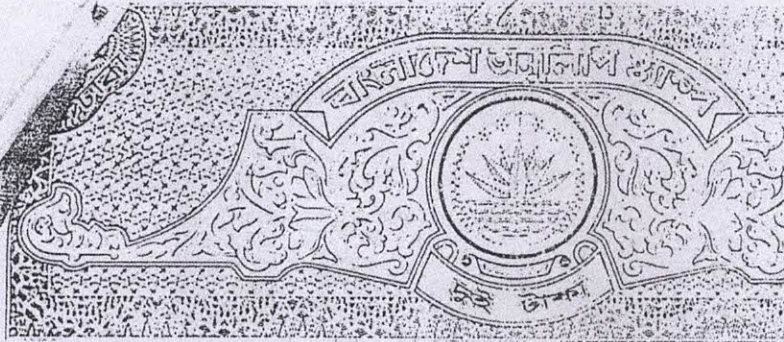 টাকা
বাংলাদেশ অনুলিপি ষ্ট্যাম্প
দুই টাকা